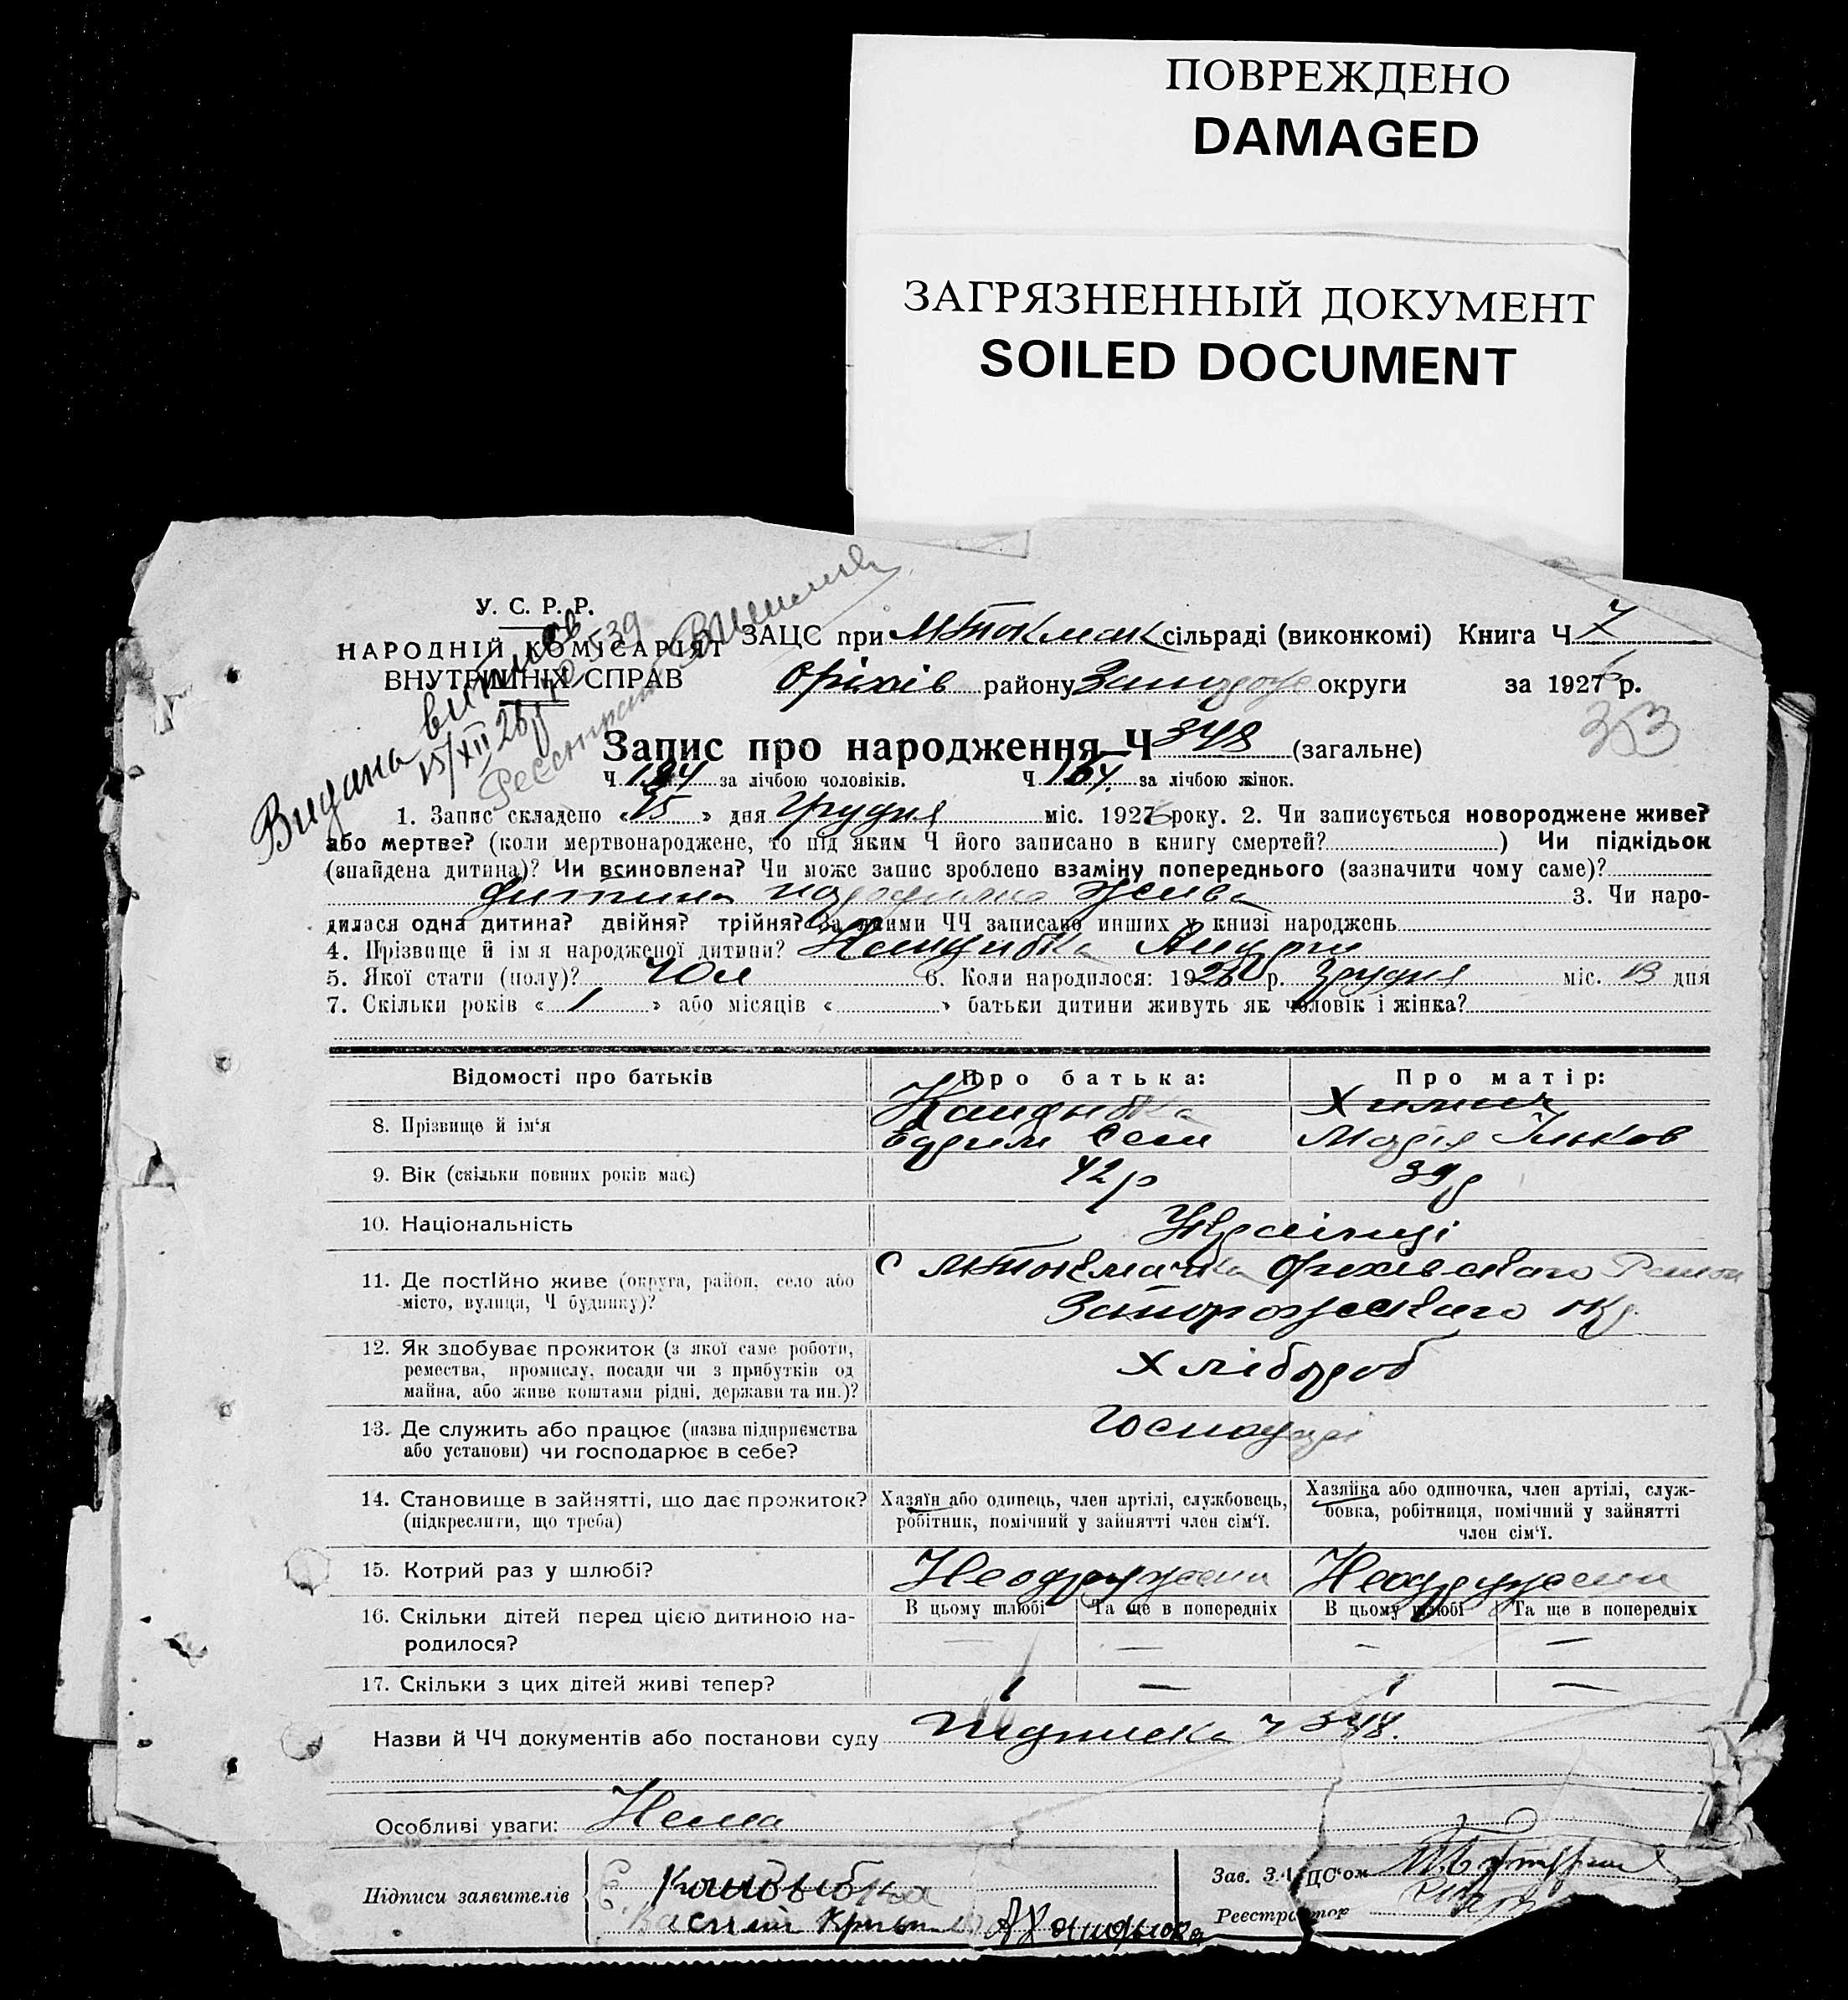 ПОВРЕЖДЕНО
DAMAGED
ЗАГРЯЗНЕННЫЙ ДОКУМЕНТ
SOILED DOCUMENT
У. С. Р. Р.
НАРОДНІЙ КОМІСАРІЯТ
ВНУТРІШНІХ СПРАВ
Видана витяг
15/XII 26 р № 539
ЗАЦС при М Токмак сільраді (виконкомі) Книга Ч 7
Оріхів району Запорож округи за 1926 р.
353
Запис про народження Ч 348 (загальне)
Ч 184 за лічбою чоловіків. Ч 164. за лічбою жінок.
1. Запис складено «15» дня Грудня міс. 1926 року. 2. Чи записується новороджене живе?
або мертве? (коли мертвонароджене, то під яким Ч його записано в книгу смертей? ) Чи підкідьок
(знайдена дитина)? Чи всиновлена? Чи може запис зроблено взаміну попереднього (зазначити чому саме)?
дитина народилась жива 3. Чи наро-
дилася одна дитина? двійня? трійня? За якими ЧЧ записано инших у книзі народжень
4. Прізвище й ім'я народженої дитини? Кандибка Андрій
5. Якої стати (полу)? Чол 6. Коли народилося: 1926 р. Грудня міс. 13 дня
7. Скільки років « 1 » або місяців « » батьки дитини живуть як чоловік і жінка?
Відомості про батьків Про батька: Про матір:
8. Прізвище й ім'я Кандибка Химич
Сем Марія Ільков
9. Вік (скільки повних років має) 42 р 39 р
10. Національність Українці
11. Де постійно живе (округа, район, село або С М Токмачка Оріхівского Район
місто, вулиця, Ч будинку)? Запорожского окр.
12. Як здобуває прожиток (з якої саме роботи, Хлібороб
ремества, промислу, посади чи з прибутків од
майна, або живе коштами рідні, держави та ин.)?
13. Де служить або працює (назва підприємства Господарі
або установи) чи господарює в себе?
14. Становище в зайнятті, що дає прожиток? Хазяїн або одинець, член артілі, службовець, Хазяйка або одиночка, член артілі, служ-
(підкреслити, що треба) робітник, помічний у зайнятті член сім'ї. бовка, робітниця, помічний у зайнятті
член сім'ї.
15. Котрий раз у шлюбі? Неодружени Неодружени
16. Скільки дітей перед цією дитиною на- В цьому шлюбі Та ще в попередніх В цьому шлюбі Та ще в попередніх
родилося? — — — —
17. Скільки з цих дітей живі тепер? 1 — 1 —
Назви й ЧЧ документів або постанови суду Підписка Ч 348.
Особливі уваги: Нема
Підписи заявителів Кандыбка Зав. ЗАЦС'ом
Василій Реєстратор